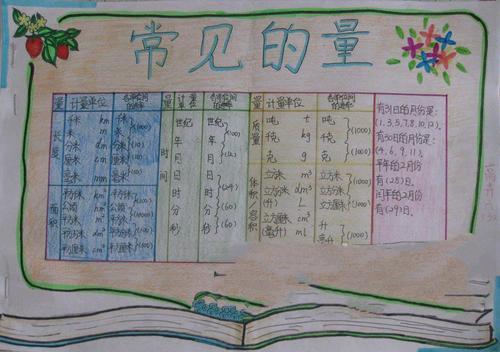 常见的量
量 计量单位 各单位间的进率
长度
千米 km
米 m
分米 dm
厘米 cm
毫米 mm
千米
米
分米
厘米
毫米
(1000)
(10)
面积
平方千米 km²
公顷
平方米 m²
平方分米 dm²
平方厘米
量 计量单位 各单位间的进率
时间
世纪
年
月
日
时
分
秒
世纪
年
月
日
时
分
秒
(100)
(12)
(24)
(60)
(60)
量 计量单位 各单位间的进率
质量
吨 t
千克 kg
克 g
吨
千克
克
(1000)
(1000)
体积容积
立方米 m³
立方分米 dm³
(升) L
立方厘米 cm³
(毫升) ml
立方米
立方分米
立方厘米
(1000)
(1000)
升
毫升
(1000)
有31日的月份是:
(1,3,5,7,8,10,12)。
有30日的月份是:
(4,6,9,11)。
平年的2月份
有(28)日。
闰年的2月份
有(29)日。